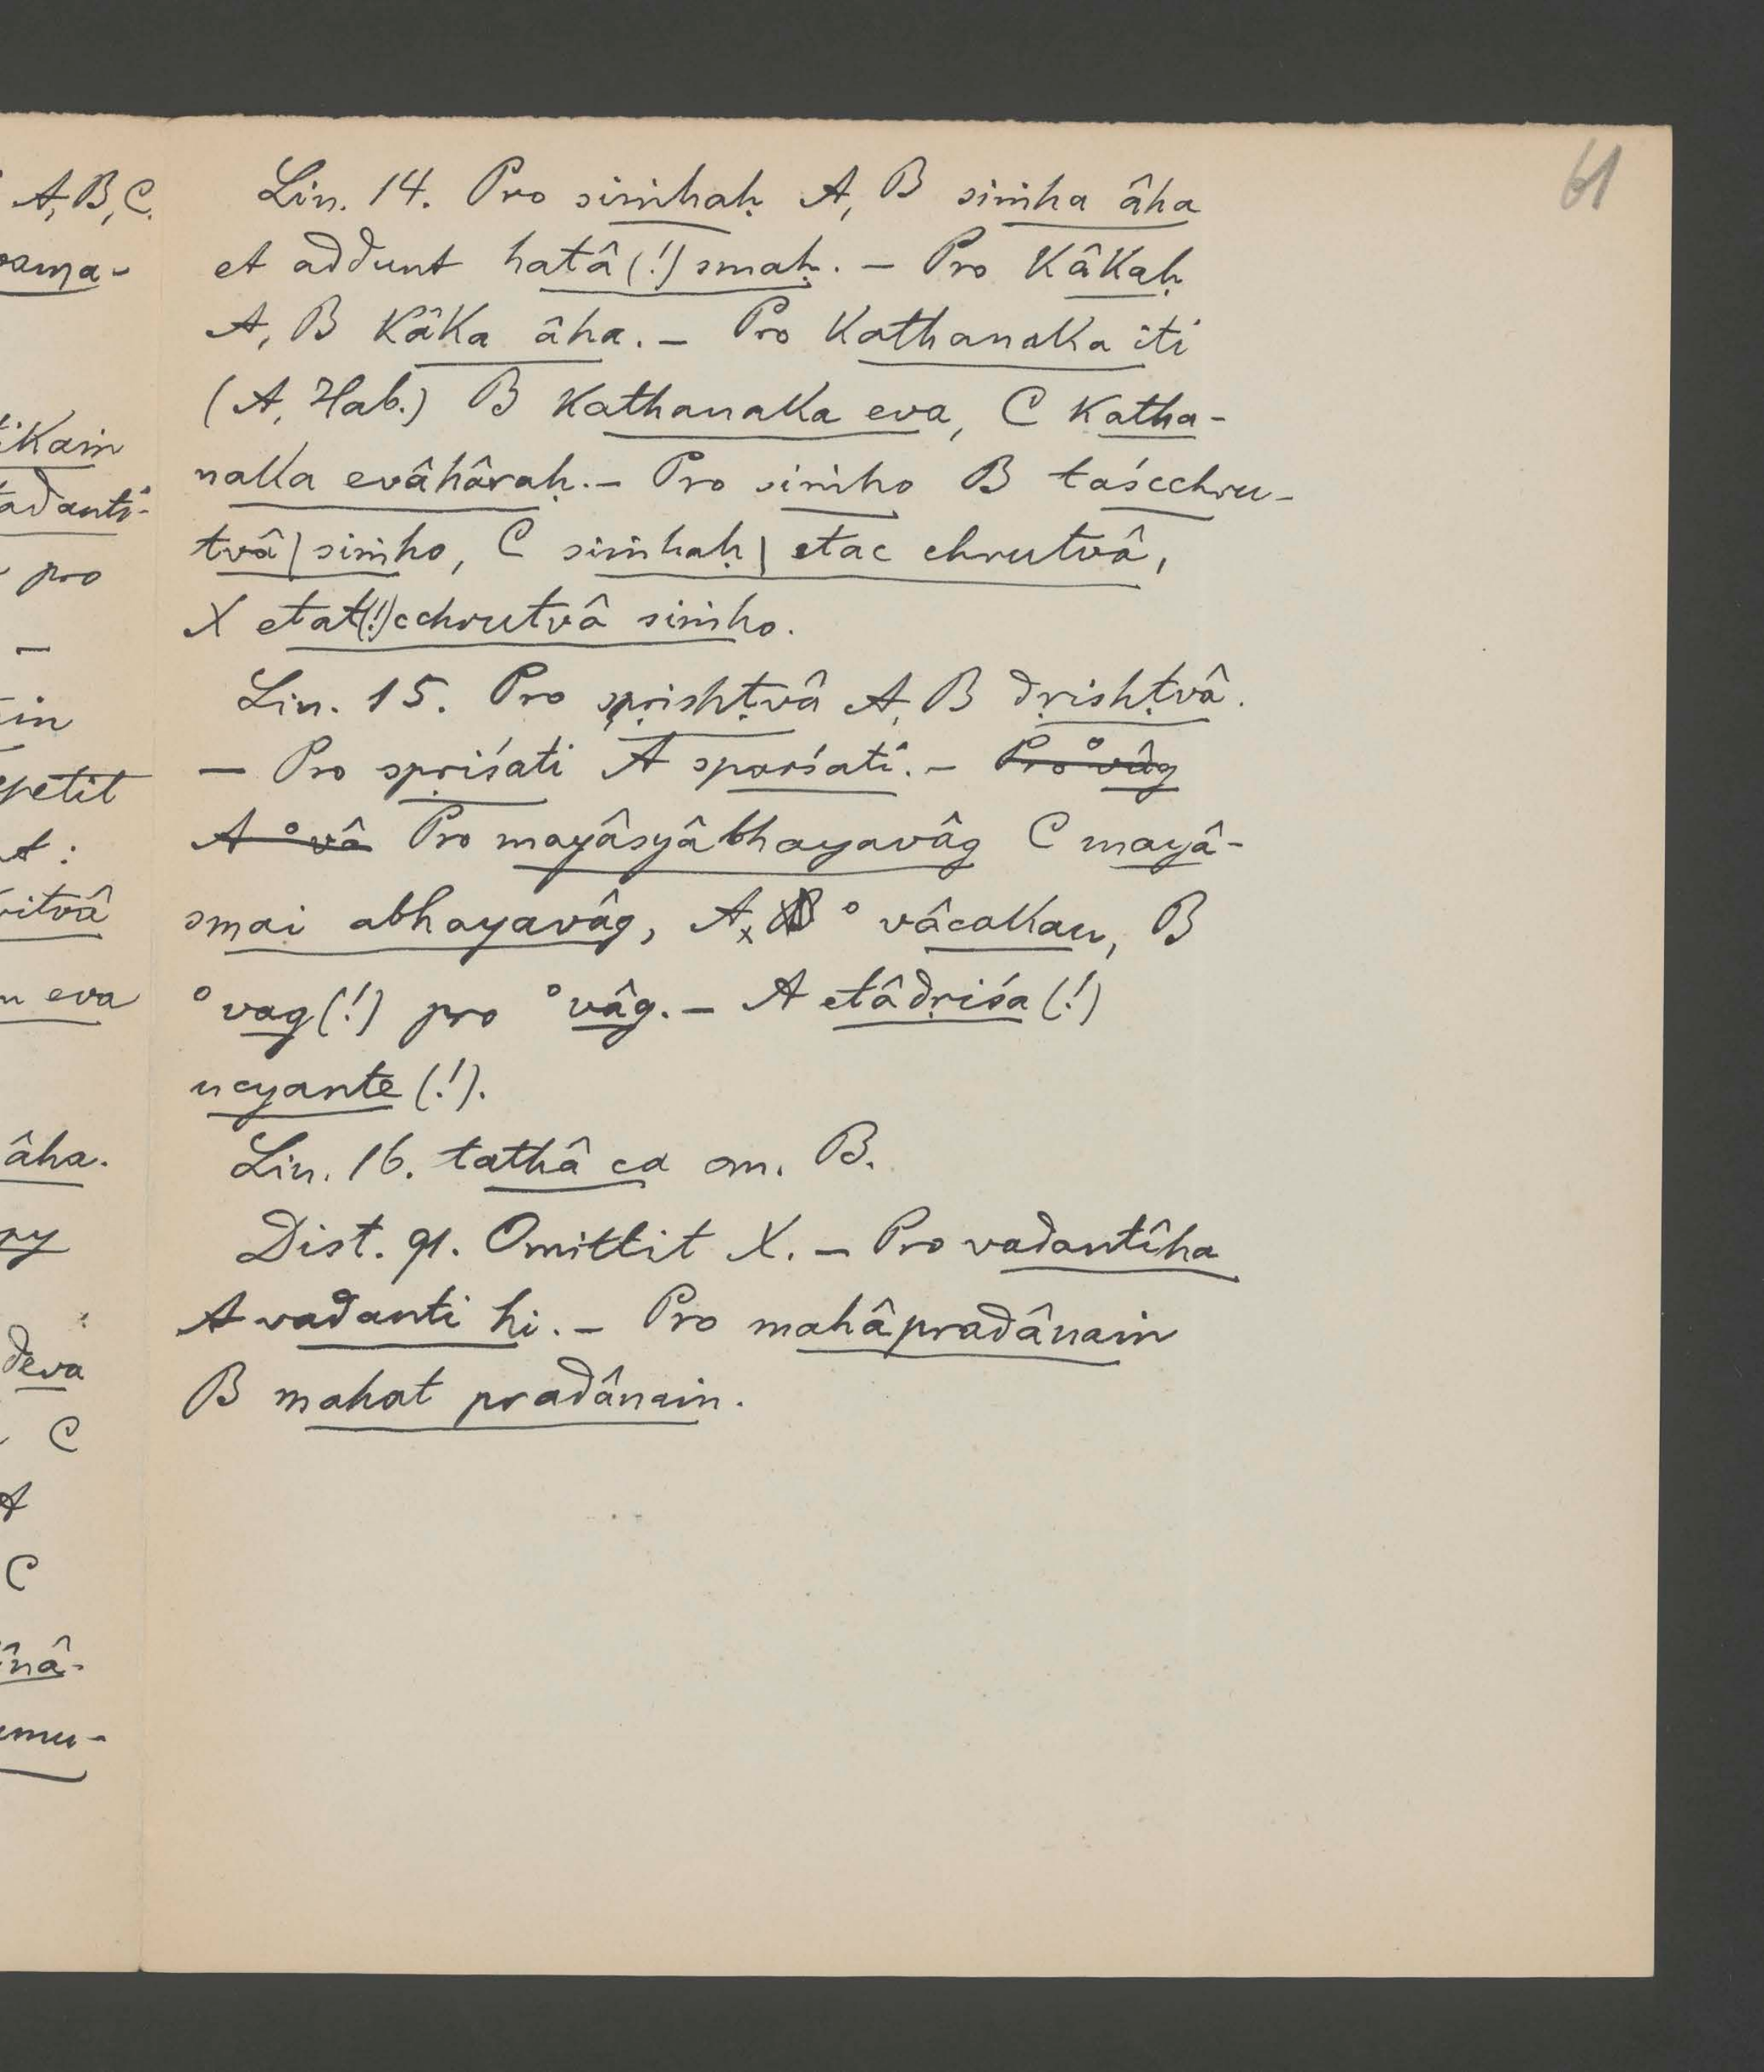 61
Lin. 14. Pro siṁhaḥ A, B siṁha âha
et addunt hatâ(!) smaḥ. — Pro kâkaḥ
A, B kâka âha. — Pro kathanaka iti
(A, Hab.) B kathanaka eva, C katha-
naka evâhâraḥ. — Pro siṁho B taścchru-
tvâ | siṁho, C siṁhaḥ | etac chrutvâ,
X etat(!)cchrutvâ siṁho.
Lin. 15. Pro spṛishṭvâ A, B dṛishṭvâ.
— Pro spṛiśati A sparśati. — Pro °vâg
A °vâ Pro mayâsyâbhayavâg C mayâ-
smai abhayavâg, A, B °vâcakau, B
°vag(!) pro °vâg. — A etâdṛiśa(!)
ucyante(!).
Lin. 16. tathâ ca om. B.
Dist. 91. Omittit X. — Pro vadantîha
A vadanti hi. — Pro mahâpradânaṁ
B mahat pradânaṁ.
A, B, C.
pro
petit
itvâ
eva
âha.
deva
C
A
C
nâ-
mu-